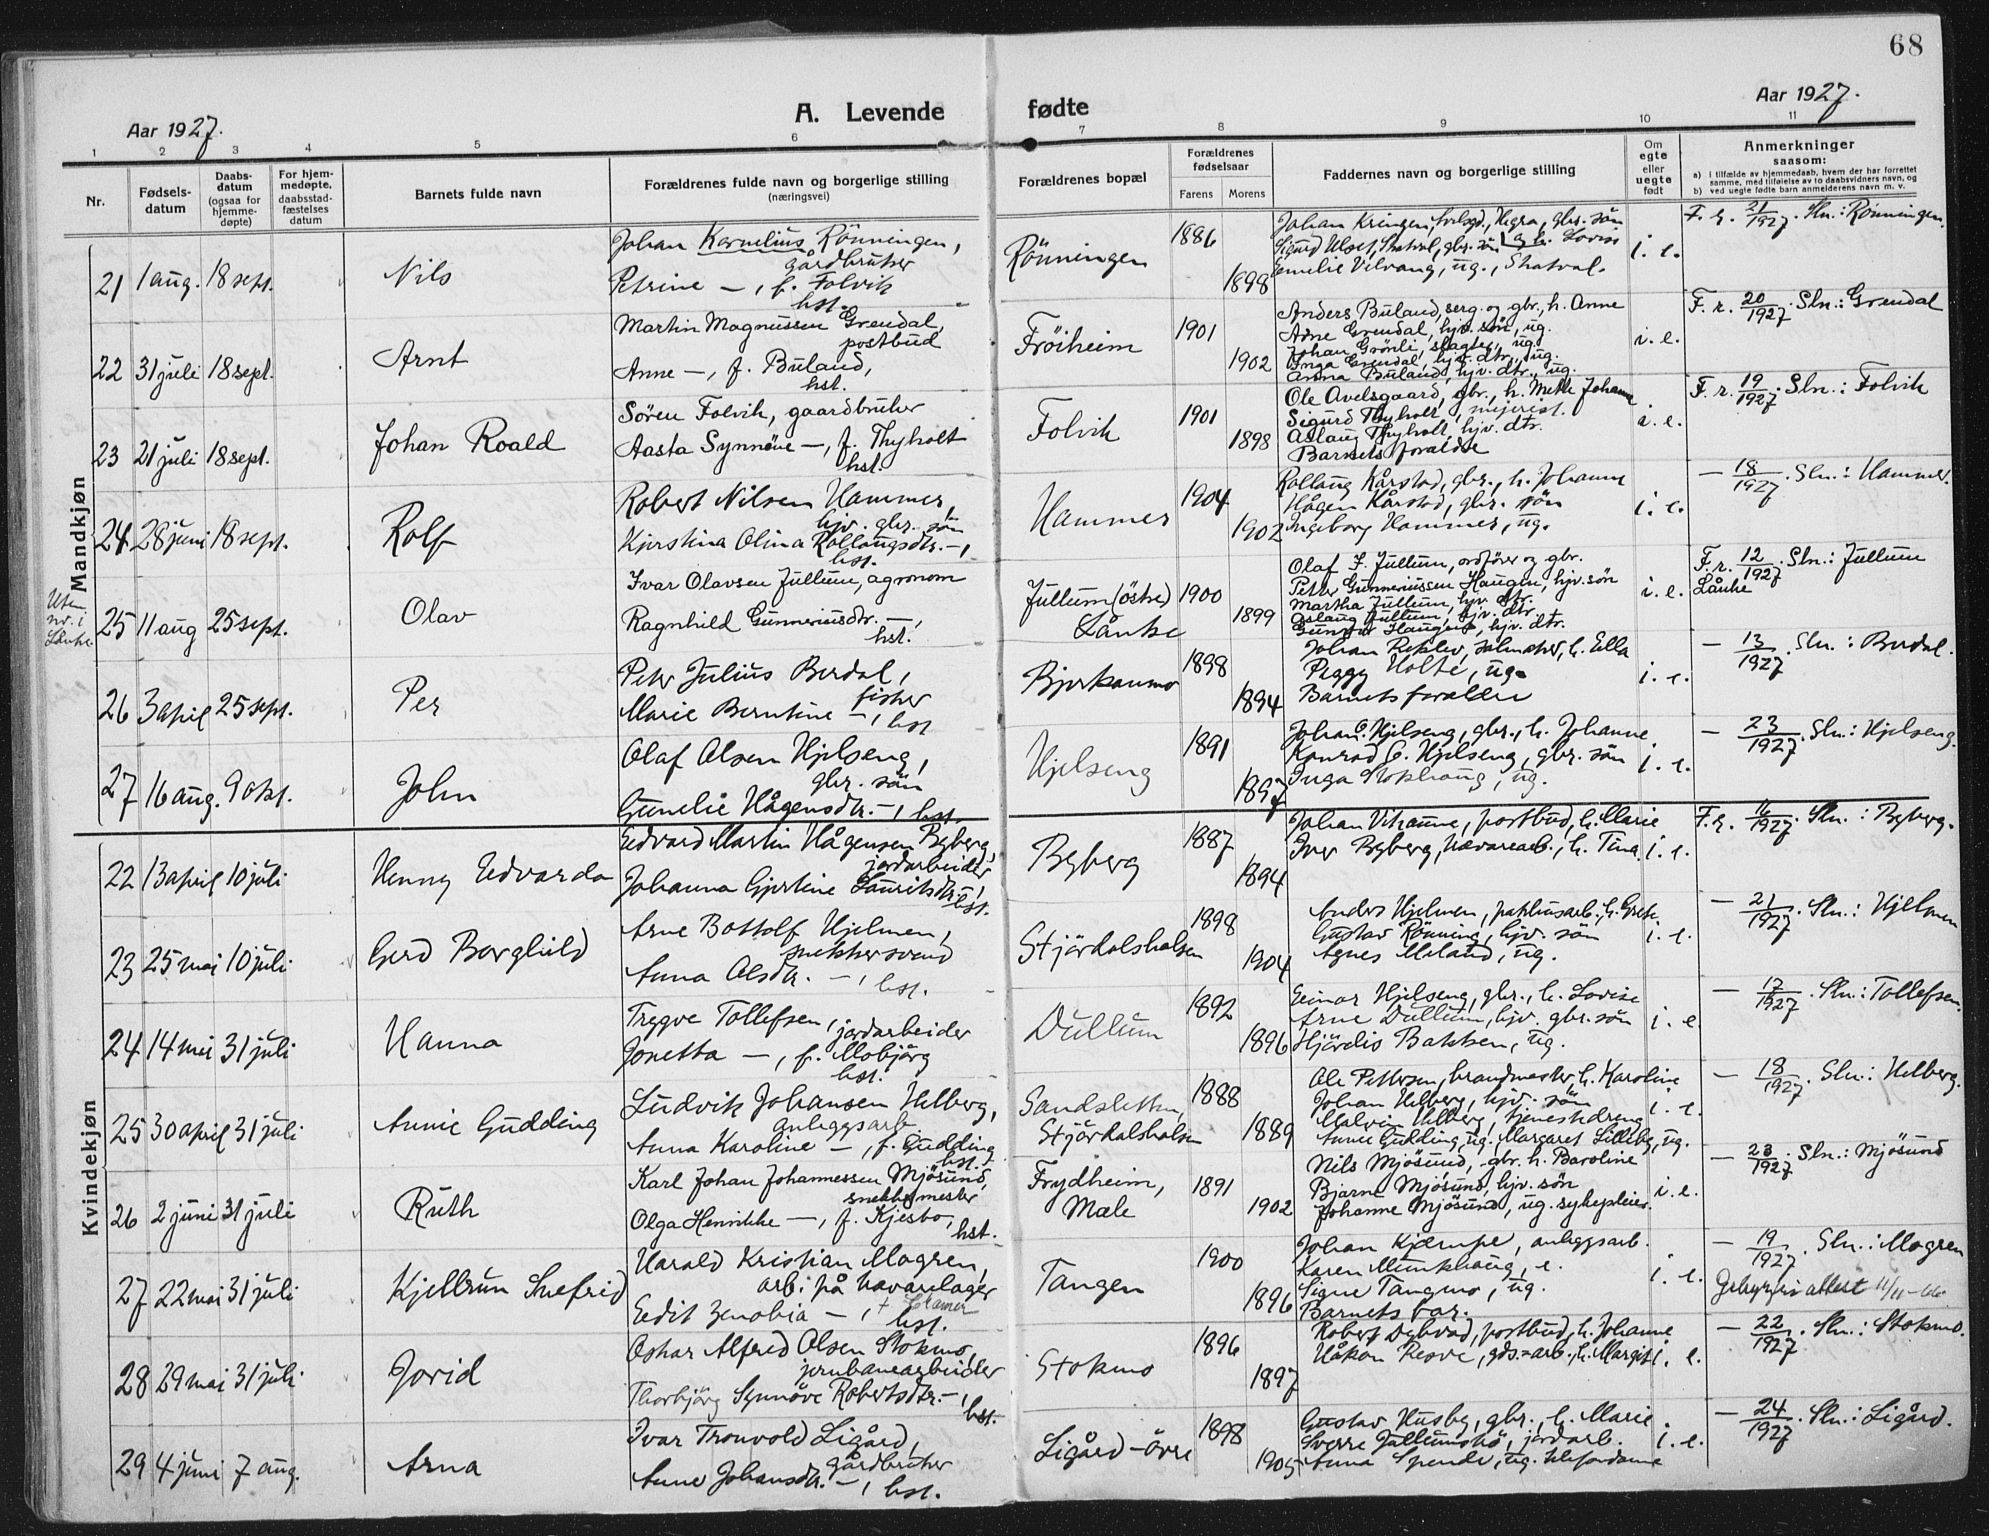 68
Aar 1927.
A. Levende fødte
Aar 1927.
1 2 3 4 5 6 7 8 9 10 11
Nr.
Fødsels-
datum
Daabs-
datum
(ogsaa for
hjemme-
døpte)
For hjem-
medøpte,
daabsstad-
fæstelses
datum
Barnets fulde navn
Forældrenes fulde navn og borgerlige stilling
(næringsvei)
Forældrenes bopæl
Forældrenes
fødselsaar
Farens Morens
Faddernes navn og borgerlige stilling
Om
egte
eller
uegte
født
Anmerkninger
saasom:
a) i tilfælde av hjemmedaab, hvem der har forrettet
samme, med tilføielse av to daabsvidners navn, og
b) ved uegte fødte barn anmelderens navn m. v.
Mandkjøn
21 1 aug. 18 sept. Nils
Johan Kornelius Rönningen,
gårdbruker
Petrine —, f. Folvik
hst.
Rönningen 1886 1898
Emelie Vilvang, ug., Skatval.
i. e.
F. r. 21/1927. Sln.: Rönningen.
22 31 juli 18 sept. Arnt
Martin Magnussen Grendal,
postbud
Anne —, f. Buland,
hst.
Fröiheim 1901 1902
Anders Buland, serg. og gbr., h. Anne
Arne Grendal, hjv. sön, ug.
Johan Grönli, slagter, ug.
Inga Grendal, hjv. dtr., ug.
Anna Buland, hjv. dtr., ug.
i. e.
F. r. 20/1927. Sln.: Grendal
23 21 juli 18 sept. Johan Roald
Sören Folvik, gaardbruker
Aasta Synnöve —, f. Thyholt
hst.
Folvik 1901 1898
Ole Avelsgaard, gbr., h. Mette Johanne
Sigurd Thyholt, mejerist.
Aslaug Thyholt, hjv. dtr.
Barnets foraldre
i. e.
F. r. 19/1927. Sln.: Folvik
24 28 juni 18 sept. Rolf
Robert Nilsen Hammer,
hjv. gbr. sön
Kjerstina Olina Rollaugsdtr. —,
hst.
Hammer 1904 1902
Rollaug Kårstad, gbr., h. Johanne
Hågen Kårstad, gbr. sön
Ingeborg Hammer, ug.
i. e.
— 18/1927. Sln.: Hammer.
Uten
nr. i
Lånke.
25 11 aug 25 sept. Olav
Ivar Olavsen Jullum, agronom
Ragnhild Gunneriusdtr. —,
hst.
Jullum (östre)
Lånke
1900 1899
Olaf F. Jullum, ordförer og gbr.
Petter Gunneriussen Haugen, hjv. sön
Martha Jullum, hjv. dtr.
Aslaug Jullum, hjv. dtr.
i. e.
F. r. 12/1927. Sln.: Jullum
Lånke
26 3 april 25 sept. Per
Peter Julius Berdal,
fisker
Marie Berntine —, hst
Bjerkanmo 1898 1894
Peggy Holte, ug.
Barnets foraldre
i. e.
— 13/1927. Sln.: Berdal.
27 16 aug. 9 okt. John
Olaf Olsen Hjelseng,
gbr. sön
Gunelie Hågensdtr. —, hst.
Hjelseng 1891 1897
Johan O. Hjelseng, gbr., h. Johanne
Konrad O. Hjelseng, gbr. sön
Inga Stokhaug, ug.
i. e.
— 23/1927. Sln.: Hjelseng.
Kvindekjøn
22 13 april 10 juli Henny Edvarda
Edvard Martin Hågensen Byberg,
jordarbeider
Johanna Gjertine Lauritsdtr. —,
hst.
Byberg 1887 1894
Johan Vikanne, postbud, h. Marie
Iver Byberg, hævarearb., h. Tina
i. e.
F. r. 16/1927. Sln.: Byberg.
23 25 mai 10 juli Gerd Borghild
Arne Bottolf Hjelmen,
snekkersvend
Anna Olsdtr. —, hst.
Stjördalshalsen 1898 1904
Anders Hjelmen, pakhusarb., h. Grete.
Gustav Rönning, hjv. sön
Agnes Moland, ug.
i. e.
— 21/1927. Sln.: Hjelmen
24 14 mai 31 juli Hanna
Trygve Tollefsen,
jordarbeider
Jonetta —, f. Mobjörg
hst.
Dullum 1892 1896
Einar Hjelseng, gbr., h. Lovise
Arne Dullum, hjv. gbr. sön
Hjördis Bakken, ug.
i. e.
— 17/1927. Sln.: Tollefsen.
25 30 april 31 juli Annie Gudding
Ludvik Johansen Helberg,
anleggsarb
Anna Karoline —, f. Gudding
hst.
Sandsletten,
Stjördalshalsen
1888 1889
Ole Pettersen, brandmester, h. Karoline
Johan Helberg, hjv. sön
Malvin Helberg, tjenestedreng
Annie Gudding, ug., Margaret Lilleby, ug.
i. e.
— 18/1927. Sln.: Helberg.
26 2 juni 31 juli Ruth
Karl Johan Johannessen Mjösund,
snekkermester
Olga Henrikke —, f. Kjesbo, hst.
Frydheim,
Mæle
1891 1902
Nils Mjösund, gbr. h. Baroline
Bjarne Mjösund, hjv. sön
Johanne Mjösund, ug. sykepleier.
i. e.
— 23/1927. Sln.: Mjösund
27 22 mai 31 juli Kjellrun Snefrid
Harald Kristian Mogren,
arb. på havarelager
Eedit Zenobia —,
hst.
Tangen 1900 1896
Johan Kjærnpe, anleggsarb.
Karen Munkhaug, e.
Signe Tangmo, ug.
Barnets far.
i. e.
— 19/1927. Sln.: Mogren
28 29 mai 31 juli Jorid
Oskar Alfred Olsen Stokmo,
jernbanearbeider
Thorbjörg Synnöve Robertsdtr. —,
hst.
Stokmo 1896 1897
Robert Dybvad, postbud, h. Johanne
Håkon Resve, gds.-arb., h. Margit
i. e.
— 22/1927. Sln.: Stokmo.
29 4 juni 7 aug. Arna
Ivar Tronvold Ligård,
gårdbruker
Anne Johansdtr. —, hst.
Ligård-övre 1898 1905
Gustav Husby, gbr., h. Marie
Sverre Jullumsbö, jordarb.
i. e.
— 24/1927. Sln.: Ligård.